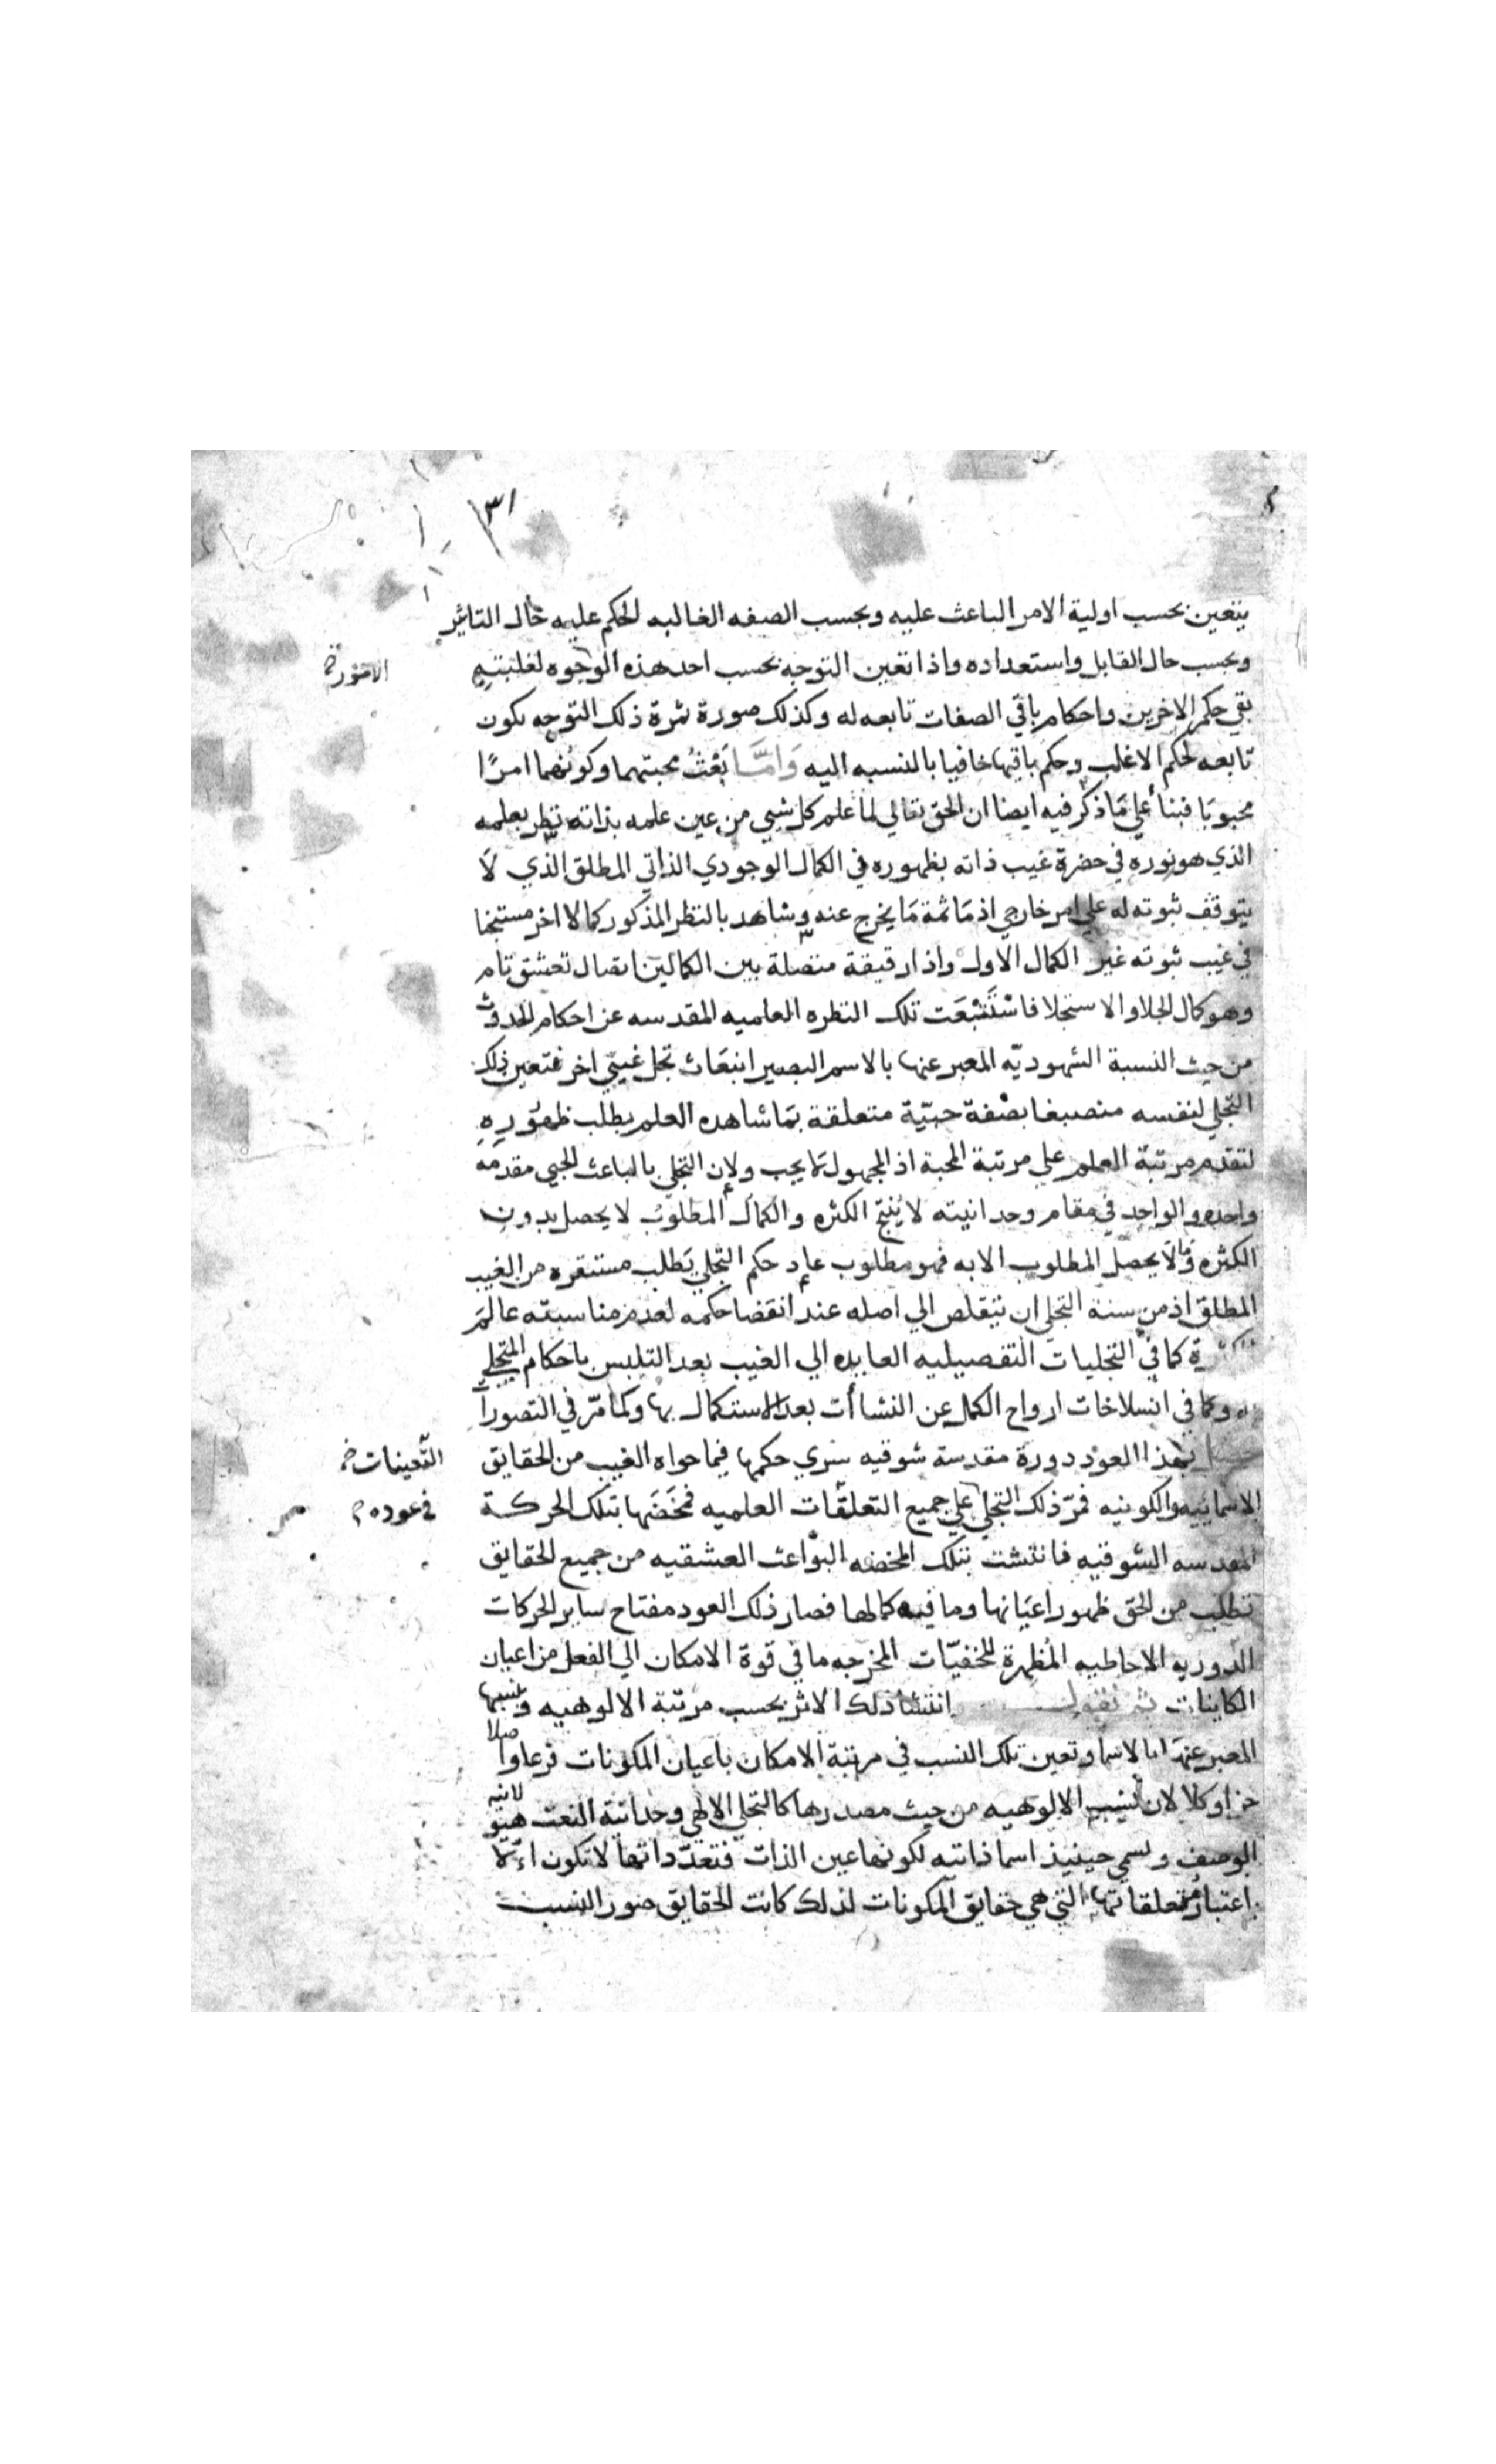 ٣١
يتعين بحسب اولية الامر الباعث عليه وبحسب الصفه الغالبه الحكم عليه حال التاثير
وبحسب حال القابل واستعداده واذا تعين التوجه بحسب احد هذه الوجوه لغلبته
الامور
بقي حكم الاخرين واحكام باقي الصفات تابعه له وكذلك صورة ثمرة ذلك التوجه تكون
تابعه لحكم الاغلب وحكم باقيها خافيا بالنسبه اليه وَامَّا بَعْثُ محبتهما وكونهما امرًا
محبوبَا فبنأ علي مَا ذكر فيه ايضا ان الحق تعالي لما علم كل شيي من عين علمه بذاته نظر بعلمه
الذي هو نوره في حضرة غيب ذاته بظهوره في الكمال الوجودي الذاتي المطلق الذي لَا
يتوقف ثبوته له علي امر خارجي اذ مَا ثمة مَا يخرج عنه وشاهد بالنظر المذكور كمالا اخر مستجنا
في غيب ثبوته غير الكمال الاول واذا رقيقة متصلة بين الكمالين اتصال تعشق تام
وهو كمال الجلا والاستجلا فاسْتَتْبَعَت تلك النظره العلميه المقدسه عن احكام الحدوث
من حيث النسبة الشهوديّه المعبر عنها بالاسم البصير انبعَاث تجل غيبي اخر فتعين ذلك
التجلي لنفسه منصبغا بصْفة حبيّة متعلقة بمَا شاهده العلم يطلب ظهُورِهِ
لتقدم مرتبة العلم علي مرتبة المحبة اذ المجهول لا يحب ولان التجلي بالباعث الحبي مقدمَه
واحده والواحد في مقام وحدانيته لا يُنتج الكثره والكمال المطلوبُ لا يحصل بدون
الكثره ومَا لا يحصل المطلوب الا به فهو مطلوب عاد حكم التجلي يَطلب مستقره من الغيب
المطلق اذ من سنة التجلي ان يتقلص الي اصله عند انقضا حكمه لعدم مناسبته عالمَ
الكثرة كما في التجليات التفصيليه العايده الي الغيب بعد التلبس باحكام المتجلي
له وكما في انسلاخات ارواح الكمل عن النشاأت بعد الاستكمال بها وكما مرّ في التصورات
بهذا العود دورة مقدسة شوقيه سري حكمها فيما حواه الغيب من الحقايق
التعينات
الاسماييه والكونيه فمرّ ذلك التجلي علي جميع التعلقّات العلميه فمخَضَها بتلك الحركة
في عوده
المقدسه الشوقيه فانتشت بتلك المخضه البوْاعث العشقيه من جميع الحقايق
تطلب من الحق ظهور اعيَانها وما فيه كمالها فصار ذلك العود مفتاح ساير الحركات
الدوريه الاحاطيه المُظهرة للخفيّات المخرجه ما في قوة الامكان الي الفعل من اعيان
الكاينات ثم نقول انتشا ذلك الاثر بحسب مرتبة الالوهيه ونسبها
المعبر عنها بالاسما وتعين تلك النسب في مرتبة الامكان باعيان المكونات فرعا واصلا
جزا وكلا لان نسب الالوهيه من حيث مصدرها كالتجلي الالهي وحدانية النعت
الوصف وتسمي حينيذ اسما ذاتيه لكونها عين الذات فتعدّداتها لا تكون
باعتبار متعلقاتها التي هي حقايق المكونات لذلك كانت الحقايق صور النسب